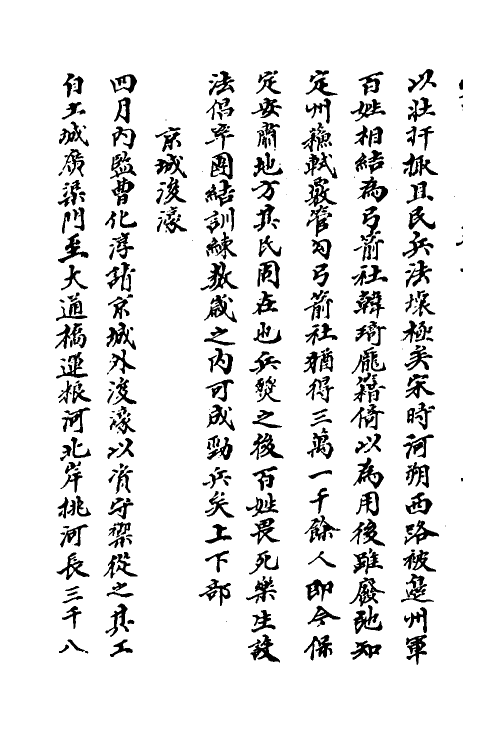 以壯扞掫且民兵法壞極矣宋時河朔西路被邊州軍
百姓相結為弓箭社韓琦龐籍倚以為用後雖廢弛知
定州蘇軾籔管勾弓箭社猶得三萬一千餘人即今保
定安肅地方其氏固在也兵燹之後百姓畏死樂生設
法倡率團結訓練數歲之内可成勁兵矣上下部
京城浚濠
四月内監曹化淳請京城外浚濠以資守禦從之其工
自土城廣渠門至大通橋運粮河北岸挑河長三千八